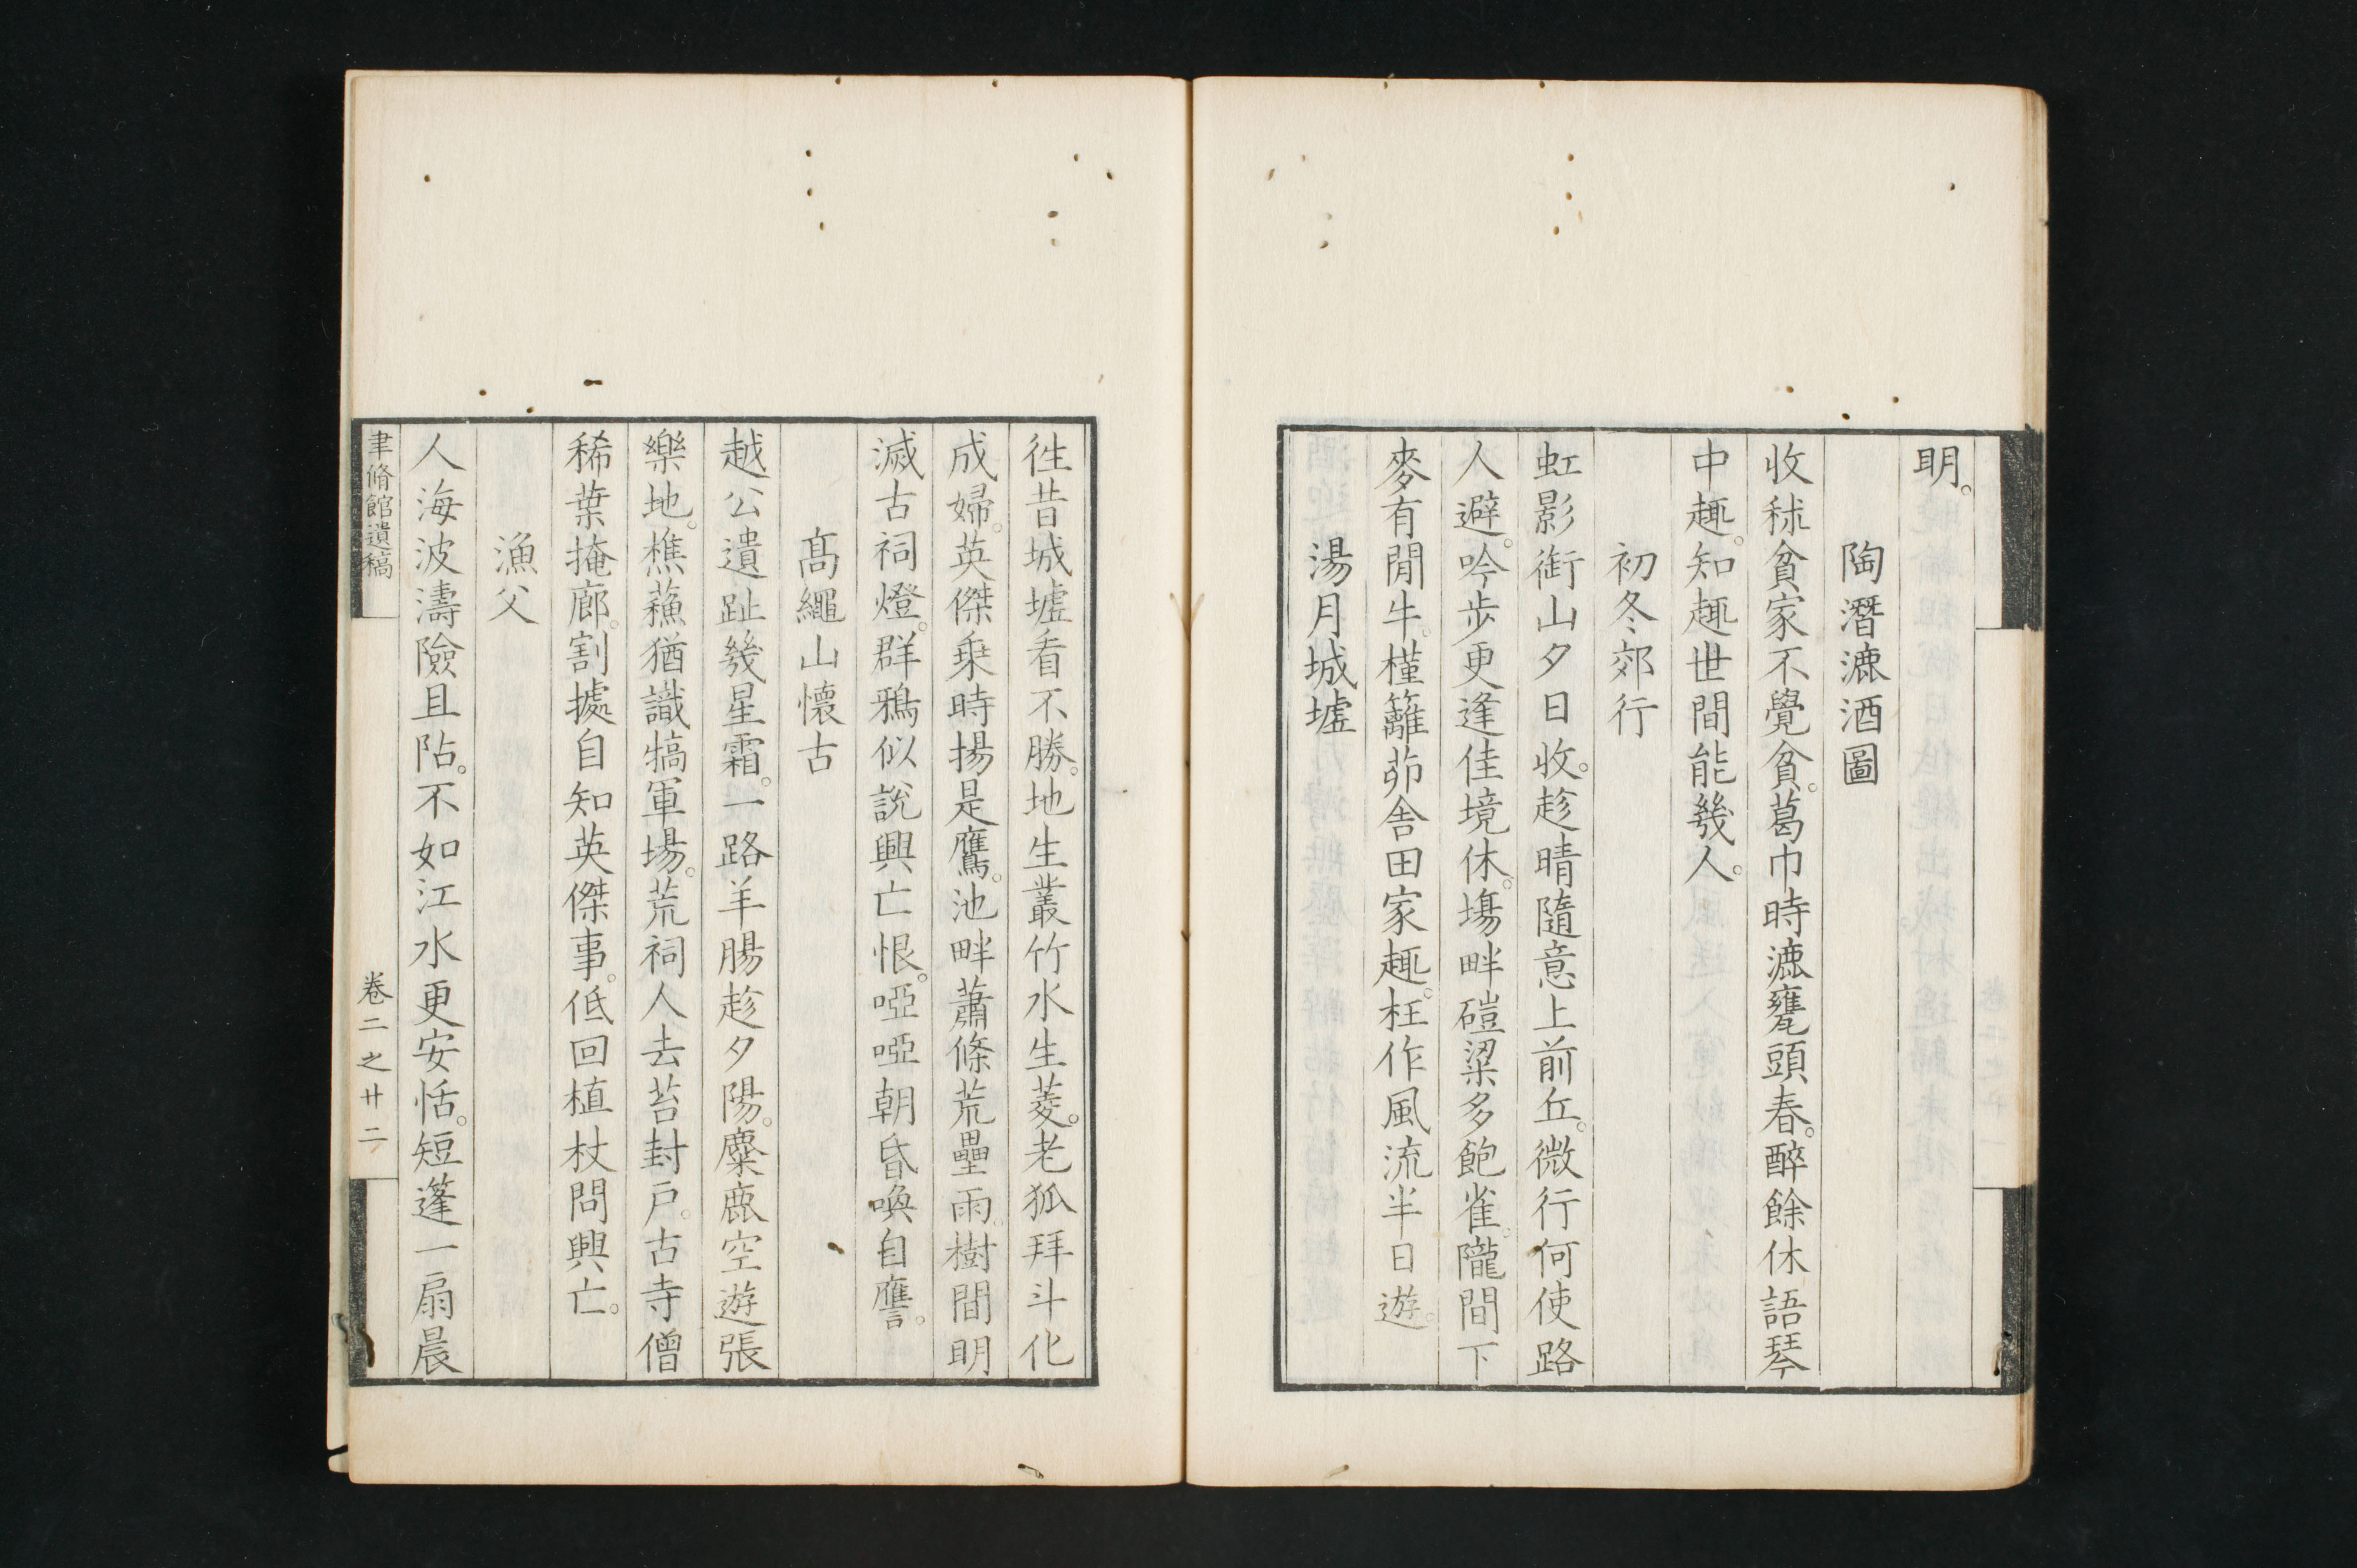 明。
陶潛漉酒圖
收秫貧家不覺貧。葛巾時漉甕頭春。醉餘休語琴
中趣。知趣世間能幾人。
初冬郊行
虹影銜山夕日收。趁晴隨意上前丘。微行何使路
人避。吟步更逢佳境休。塲畔磑粱多飽雀。隴間下
麥有閒牛。槿籬茆舎田家趣。枉作風流半日遊。
湯月城墟
徃昔城墟看不勝。地生叢竹水生菱。老狐拜斗化
成婦。英傑乗時揚是鷹。池畔蕭條荒壘雨。樹間明
滅古祠燈。群鴉似說興亡恨。啞啞朝昏喚自譍。
髙繩山懷古
越公遺趾幾星霜。一路羊腸趁夕陽。麋鹿空遊張
樂地。樵蘓猶識犒軍場。荒祠人去苔封戶。古寺僧
稀葉掩廊。割據自知英傑事。低回植杖問興亡。
漁父
人海波濤險且阽。不如江水更安恬。短篷一扇晨
聿脩館遺稿
卷二之廿二